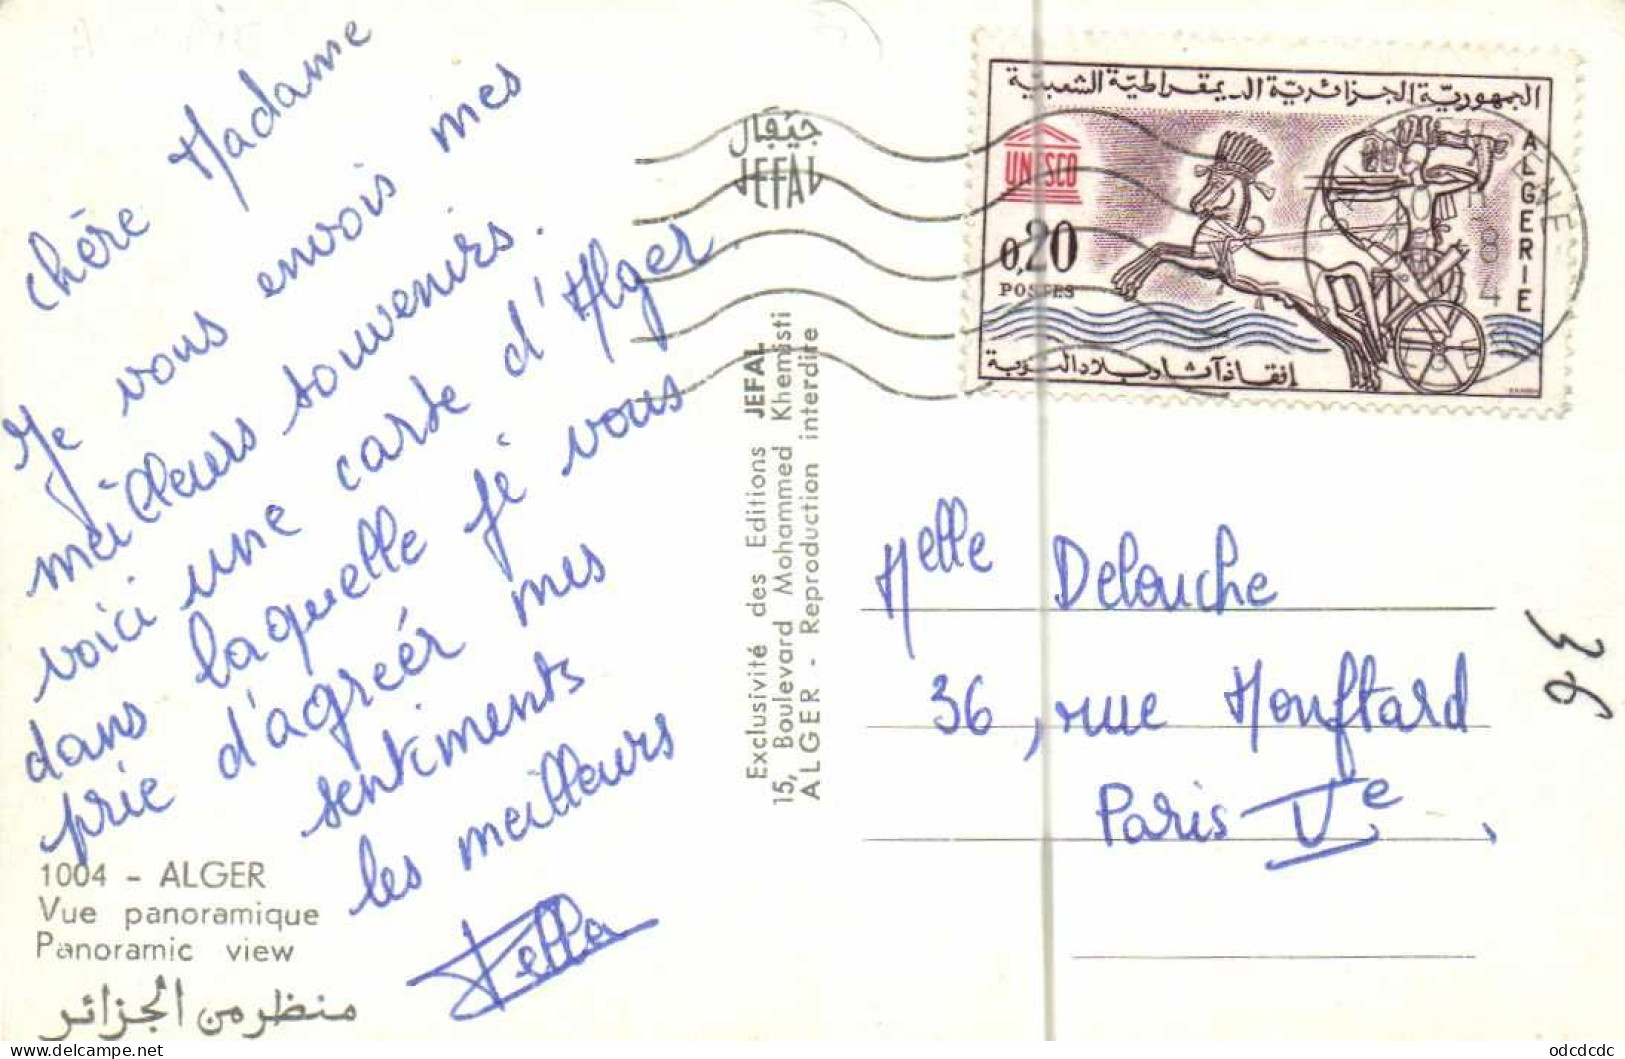 chère Madame
Je vous envois mes
meilleurs souvenirs.
voici une carte d'Alger.
dans laquelle je vous
prie d'agreér mes
sentiments
les meilleurs
Fella
1004 - ALGER
Vue panoramique
Panoramic view
منظر من الجزائر
جيفال
JEFAL
Exclusivité des Editions JEFAL
15, Boulevard Mohammed Khemisti
ALGER - Reproduction interdite
الجمهوريّة الجزائريّة الديمقراطيّة الشعبيّة
UNESCO
ALGERIE
0,20
POSTES
إنقاذ آثار بلاد النوبة
Melle Delouche
36, rue Mouftard
Paris Ve
36
odcdcdc